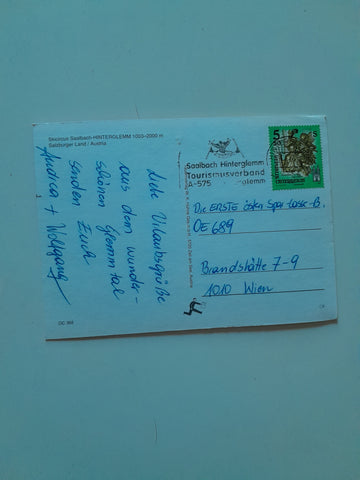 Skicircus Saalbach-HINTERGLEMM 1003-2000 m
Salzburger Land / Austria
Liebe Urlaubsgrüße
aus dem wunder-
schönen Glemmtal
senden Euch
Andrea + Wolfgang
Saalbach Hinterglemm
Tourismusverband
A-575 glemm
5
Die ERSTE österr. Spar-Casse-B.
OE 689
Brandstätte 7-9
1010 Wien